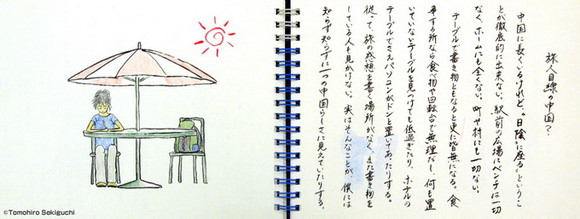 旅人目線の中国?
中国に長くいるけれど、“日陰に座る”というこ
とが徹底的に出来ない。駅前の広場にベンチは一切
なく、ホームにも全くない。町や村にも一切ない。
テーブルで書き物ともなると更に皆無になる。食
事する所なら食べ物で回転台で無理だし、何も置
いていないテーブルを見つけても低過ぎたり、ホテルの
テーブルでさえパソコンがドンと置いてあったりする。
従って、旅の感想を書く場所がなく、また書き物を
している人も見かけない。実はそんなことが、僕には
知らず知らずに一つの中国らしさに見えていたりする。
©Tomohiro Sekiguchi